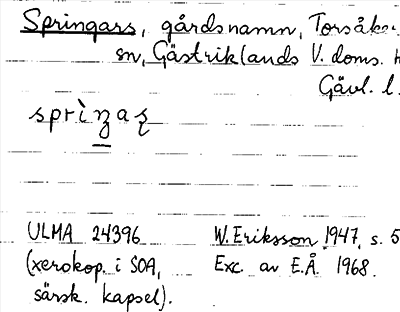 Springars, gårdsnamn, Torsåker
sn, Gästriklands V. doms. h
Gävl. l.
sprìŋaʂ
ULMA 24396 W. Eriksson 1947, s. 5
(xerokop. i SOA, Exc. av E.Å. 1968.
särsk. kapsel).